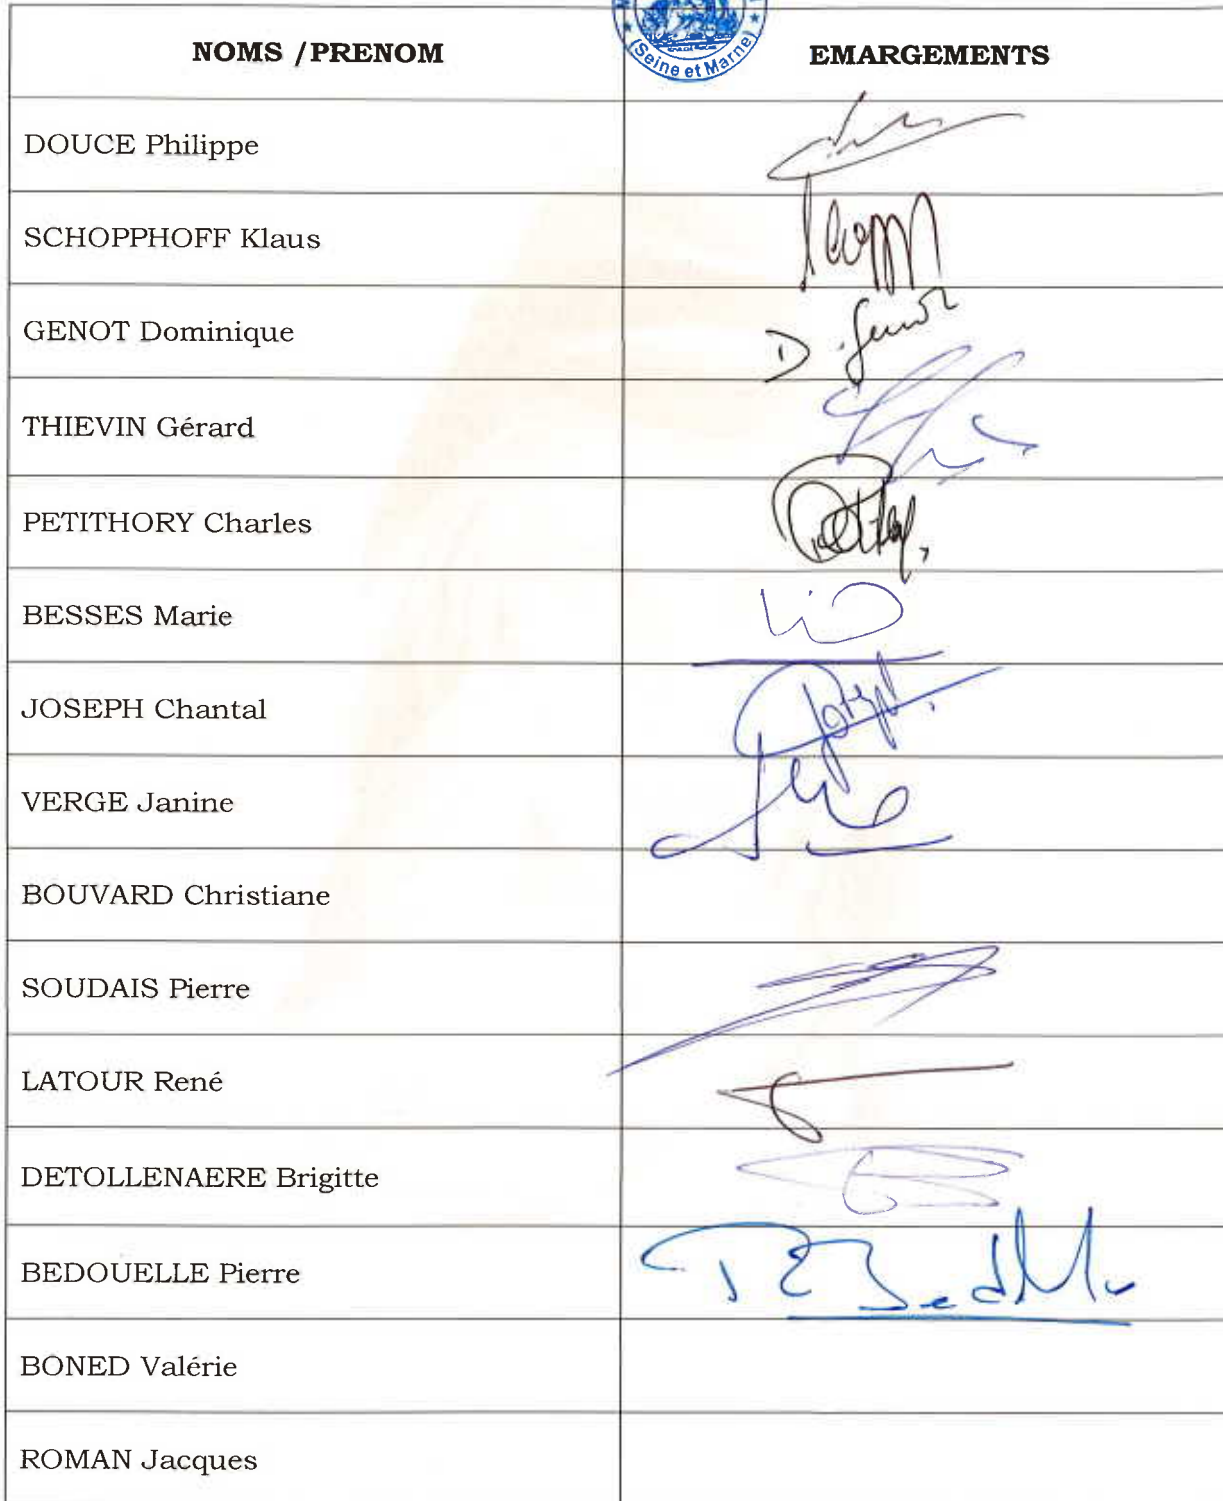 NOMS /PRENOM
(Seine et Marne)
EMARGEMENTS
DOUCE Philippe
SCHOPPHOFF Klaus
GENOT Dominique
D. Genot
THIEVIN Gérard
PETITHORY Charles
BESSES Marie
JOSEPH Chantal
VERGE Janine
BOUVARD Christiane
SOUDAIS Pierre
LATOUR René
DETOLLENAERE Brigitte
BEDOUELLE Pierre
BONED Valérie
ROMAN Jacques